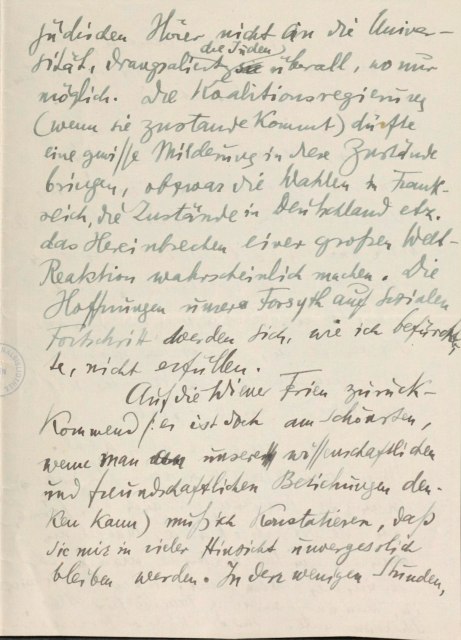 jüdischen Hörer nicht an die Univer-
sität, drangsaliert die Juden überall, wo nur
möglich. Die Koalitionsregierung
(wenn sie zustande kommt) dürfte
eine gewisse Milderung in diese Zustände
bringen, obzwar die Wahlen in Frank-
reich, die Zustände in Deutschland etz.
das Hereinbrechen einer großen Welt-
Reaktion wahrscheinlich machen. Die
Hoffnungen unsers Forsyth auf sozialen
Fortschritt werden sich, wie ich befürch-
te, nicht erfüllen.
Auf die Wiener Ferien zurück-
kommend /: es ist doch am Schönsten,
wenn man an unsere wissenschaftlichen
und freundschaftlichen Beziehungen den-
ken kann) muß ich konstatieren, daß
sie mir in vieler Hinsicht unvergesslich
bleiben werden. In den wenigen Stunden,